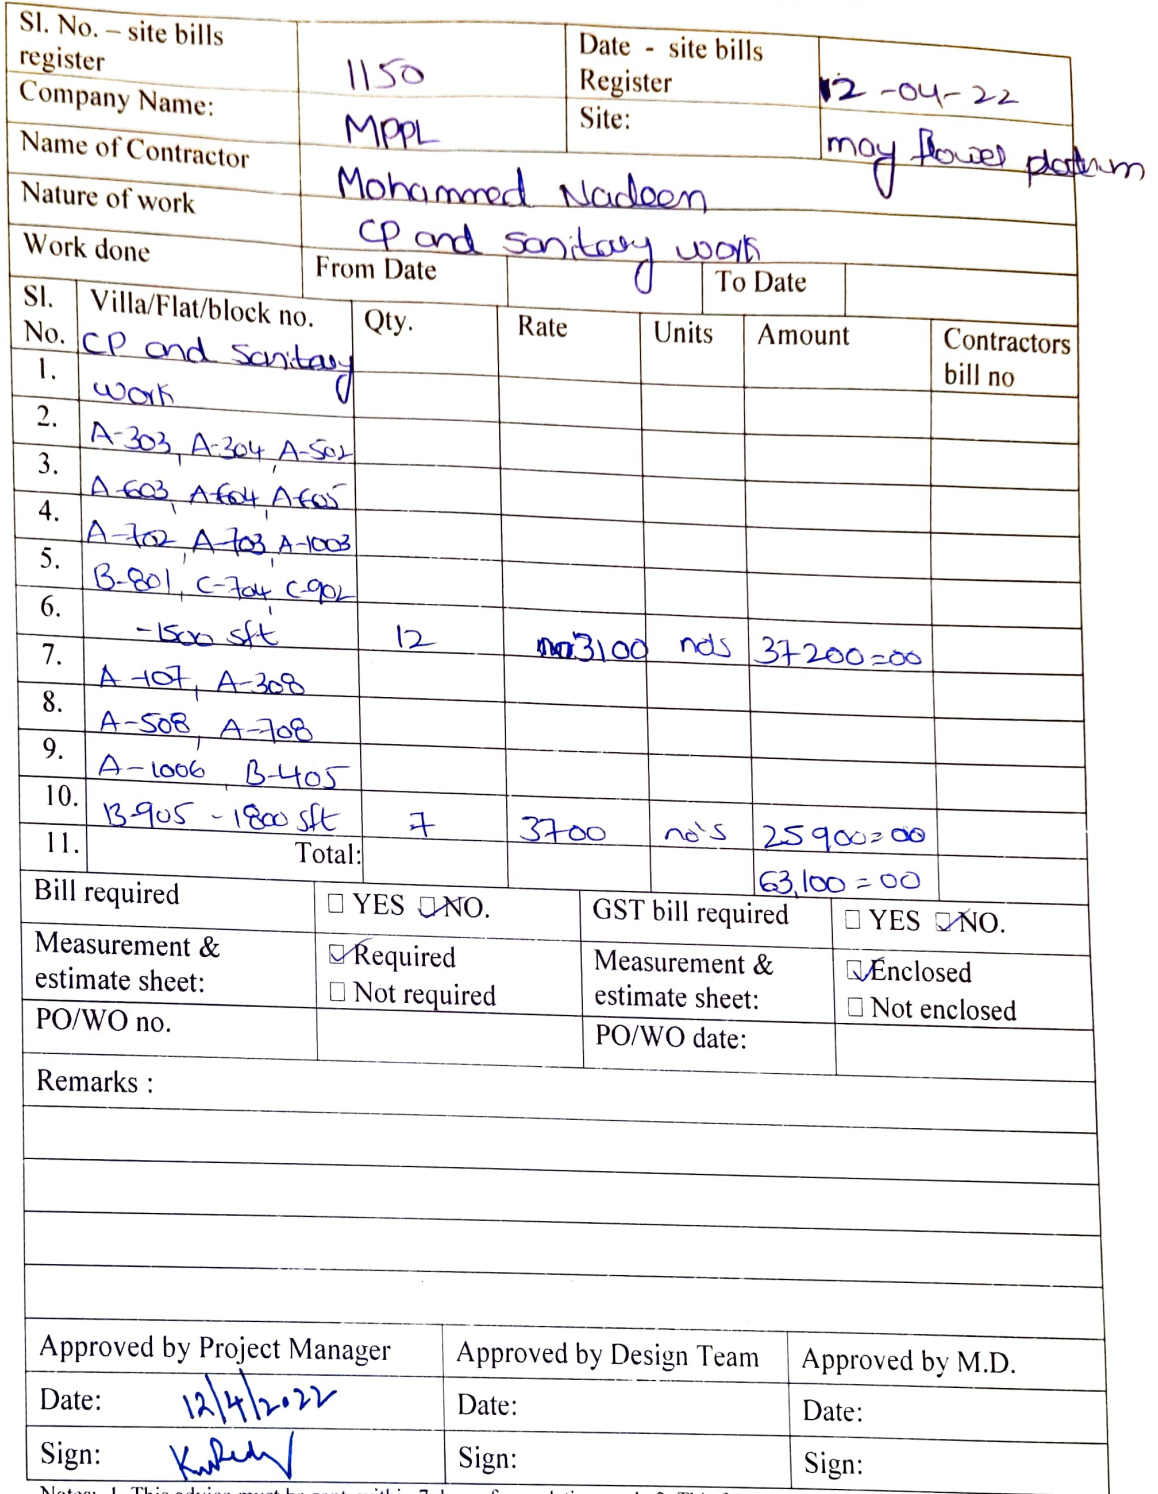 Sl. No. – site bills register 1150 Date - site bills Register 12-04-22
Company Name: MPPL Site: may flower platinum
Name of Contractor Mohammed Nadeen
Nature of work CP and Sanitary work
Work done From Date To Date
Sl. No. Villa/Flat/block no. Qty. Rate Units Amount Contractors bill no
CP and Sanitary
1. work
2. A-303, A-304, A-502
3. A-603, A-604, A-605
4. A-702, A-703, A-1003
5. B-801, C-704, C-902
6. -1500 sft 12 3100 no's 37200=00
7. A-107, A-308
8. A-508, A-708
9. A-1006, B-405
10. B-905 - 1800 sft 7 3700 no's 25900=00
11. Total: 63,100=00
Bill required ☐ YES ☑ NO. GST bill required ☐ YES ☑ NO.
Measurement & estimate sheet: ☑ Required ☐ Not required Measurement & estimate sheet: ☑ Enclosed ☐ Not enclosed
PO/WO no. PO/WO date:
Remarks :
Approved by Project Manager Approved by Design Team Approved by M.D.
Date: 12/4/2022 Date: Date:
Sign: Sign: Sign: